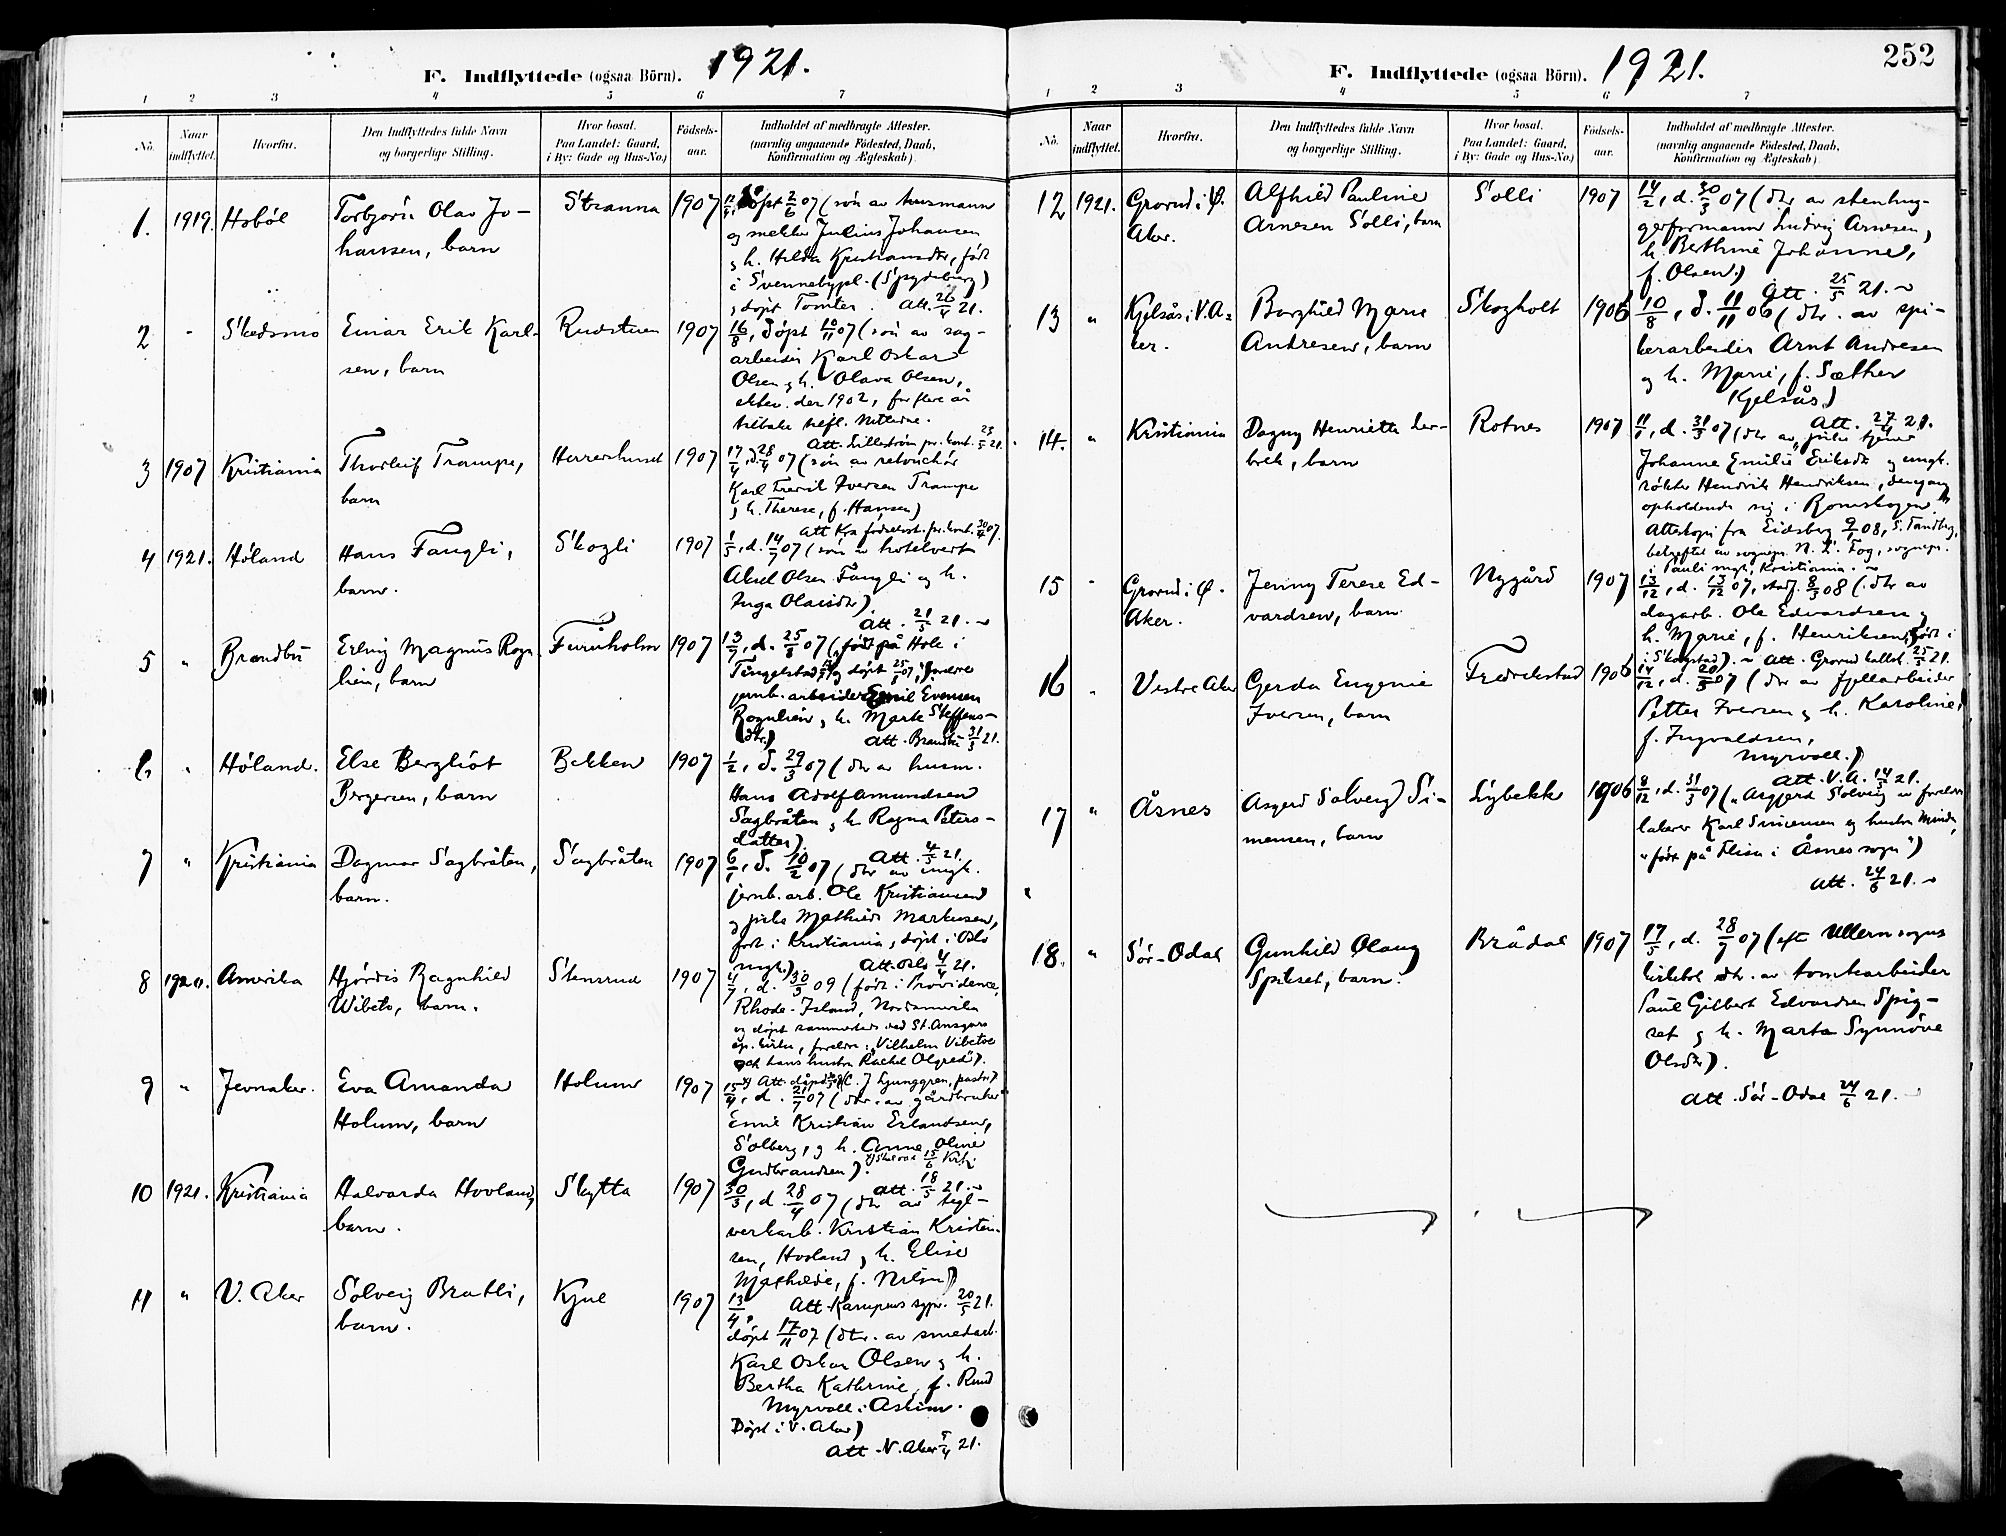 F. Indflyttede (ogsaa Börn). 1921.
1 2 3 4 5 6 7
No.
Naar indflyttet.
Hvorfra.
Den Indflyttedes fulde Navn
og borgerlige Stilling.
Hvor bosat.
Paa Landet: Gaard,
i By: Gade og Hus-No.)
Fødsels-
aar.
Indholdet af medbragte Attester.
(navnlig angaaende Födested, Daab,
Konfirmation og Ægteskab)
1. 1919. Hobøl Torbjørn Olav Jo- Stranna 1907 døpt 2/6 07 (søn av husmann
hansen, barn og møller Julius Johansen
og h. Hilda Kristiansdtr, født
i Svennebypl. (Spydeberg)
, døpt Tomter. Att. 26/4 21.
2 " Skedsmo Einar Erik Karl- Rudstuen 1907 16/8, døpt 10/11 07 (søn av sag-
sen, barn arbeider Karl Oskar
Olsen g h. Olava Olsen,
ektev. der 1902, for flere år
tilbake tilfl. Nitterne.
Att. Lillestrøm pr. kont. 23/5 21.
3 1907 Kristiania Thorleif Trampe, Herreshuset 1907 17/4, d. 28/4 07 (søn av retouchør
barn Karl Fredrik Iversen Trampe
g h. Therese, f. Hansen)
Att Kra fødselsst. pr. kont. 30/4 07.
4 1921. Høland Hans Fangli, Skogli 1907 1/5, d. 14/7 07 (søn av hotelvert
barn. Aksel Olsen Fangli og h.
Inga Olausdtr).
Att. 21/5 21.
5 " Brandbu Erling Magnus Rogn- Furuholm 1907 13/7, d. 25/8 07 (født på Hole i
lien, barn Tingelstad, og døpt 25/8 07, foreldre
jernb. arbeider Emil Evensen
Rognlien g h. Marte Steffens-
dtr.) Att. Brandbu 31/3 21.
6 " Høland. Else Bergliot Bekken 1907 1/2, d. 29/3 07 (dtr av husm.
Bergersen, barn Hans Adolf Amundsen
Sagbråten g h. Ragna Peters-
datter).
Att. 4/3 21.
7 " Kristiania Dagmar Sagbråten, Sagbråten 1907 6/1, d. 10/2 07 (dtr av ungk.
barn. jernb. arb. Ole Kristiansen
g pike Mathilde Markusen,
født i Kristiania, døpt i Oslo
mgh.) Att. Oslo 4/4 21.
8 1920. Amerika Hjørdis Ragnhild Stensrud 1907 4/7, d. 30/5 09 (født i Providence,
Wibeto, barn. Rhode-Island, Nordamerika
og døpt sammesteds ved St. Ansgars
ep. kirke, foreldre: "Vilhelm Vibetoe
och hans hustru Rachel Olgred").
Att. (C. J Ljunggren, pastor)
9 " Jevnaker. Eva Amanda Holum 1907 15/4, d. 21/7 07 (dtr. av gårdbruker
Holum, barn Emil Kristian Erlandsen,
Solberg, g h. Anne Oline
Gudbrandsen).
Att. 18/5 21.
10 1921. Kristiania Halvarda Hovland, Skytta 1907 30/3, d. 28/4 07 (dtr av tegl-
barn. verkarb. Kristian Kristen-
sen, Hovland g h. Elise
Mathilde, f. Nilsen)
Att. Kampens sypr. 20/5 21.
11 " V. Aker Solveig Bratli, Kjul 1907 13/4,
barn. døpt 17/11 07 (dtr. av smedarb.
Karl Oskar Olsen g h.
Bertha Kathrine, f. Ruud
Myrvoll i Askim.
Døpt i V. Aker)
Att. V. Aker 5/4 21.
F. Indflyttede (ogsaa Börn). 1921. 252
1 2 3 4 5 6 7
No.
Naar indflyttet.
Hvorfra.
Den Indflyttedes fulde Navn
og borgerlige Stilling.
Hvor bosat.
Paa Landet: Gaard,
i By: Gade og Hus-No.)
Fødsels-
aar.
Indholdet af medbragte Attester.
(navnlig angaaende Födested, Daab,
Konfirmation og Ægteskab)
12 1921. Grorud i Ø. Alfhild Pauline Solli 1907 14/2, d. 30/3 07 (dtr av stenhug-
Aker. Arnesen Solli, barn gerformann Ludvig Arnesen,
h. Berthine Johanne,
f. Olsen.)
Att. 25/5 21.
13 " Kjelsås i V. A- Borghild Marie Skogholt 1906 10/8, d. 11/11 06 (dtr. av spi-
ker. Andresen, barn kerarbeider Arnt Andresen
og h. Marie, f. Sæther
Kjelsås)
Att. 27/4 21.
14. " Kristiania Dagny Henriette Ler- Rotnes 1907 11/1, d. 31/3 07 (dtr av pike tjener
bek, barn Johanne Emilie Eriksdtr og ungk.
røkter Hendrik Hendriksen, dengang
opholdende sig i Romskogen."
Attekopi fra Eidsberg 9/1 08, S. Tandberg,
bekreftet av sognepr. N. L. Fog, sognepr.
i Pauli mgh, Kristiania.
15 " Grorud i Ø. Jenny Terese Ed- Nygård 1907 13/12, d. 13/12 07, stadf. 8/3 08 (dtr av
Aker. vardsen, barn dagarb. Ole Edvardsen g
h. Marie, f. Henriksen, født i
i Skogstad). Att. Grorud kallsk. 25/5 21.
16 " Vestre Aker Gerda Eugenie Fredrikstad 1906 14/12, d. 20/5 07 (dtr av fjellarbeider
Iversen, barn Petter Iversen g h. Karoline,
f. Ingvaldsen,
Myrvoll.)
Att. V. A. 14/5 21.
17 " Åsnes Asgerd Solveig Si- Lybekk 1906 8/12, d. 31/3 07 ("Asgjerd Solveig av foreldre
mensen, barn lakerer Karl Simensen og hustru Minda,
"født på Flisa i Åsnes sogn")
Att. 24/6 21.
18. " Sør-Odal Gunhild Olaug Brådal 1907 17/5, d. 28/7 07 (efter Ullern sogns
Spikset, barn. kirkebok dtr. av tomtearbeider
Paul Gilbert Edvardsen Spig-
set g h. Marta Synnøve
Olsdtr).
Att. Sør-Odal 24/6 21.